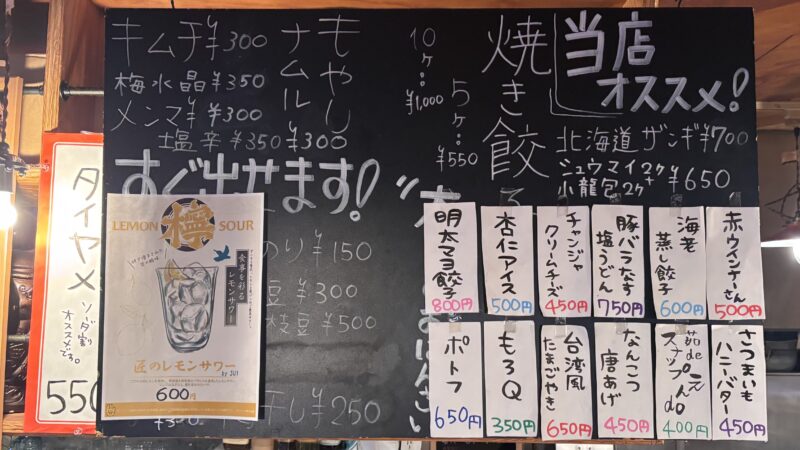 当店
オススメ!
北海道ザンギ¥700
シュウマイ2ケ
小龍包2ケ
¥650
焼き餃子
5ケ…¥550
10ケ…¥1,000
もやし
ナムル
¥300
キムチ¥300
梅水晶¥350
メンマ¥300
塩辛¥350
すぐ出せます!
のり¥150
豆¥300
枝豆¥500
干し¥250
タイヤメ
ソーダ割
オススメです。
550
LEMON SOUR
檸
食事を彩る
レモンサワー
匠のレモンサワー
by JUJ
600円
赤ウインナーさん
500円
海老
蒸し餃子
600円
豚バラなす
塩うどん
750円
チャンジャ
クリームチーズ
450円
杏仁アイス
500円
明太マヨ餃子
800円
さつまいも
ハニーバター
450円
茹de
スナップえんdo
400円
なんこつ
唐あげ
450円
台湾風
たまごやき
650円
もろQ
350円
ポトフ
650円